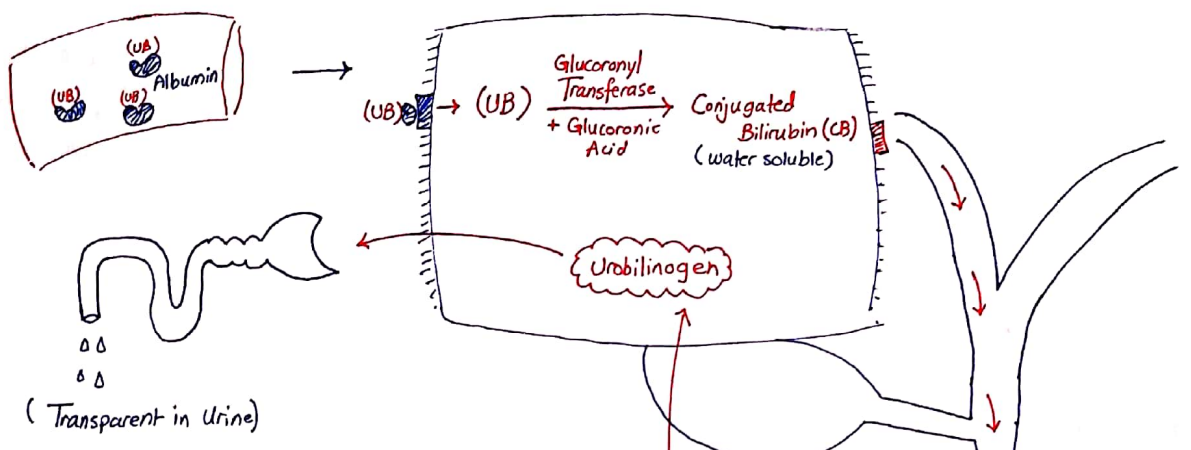 (UB)
(UB)
(UB)
Albumin
(UB)
(UB)
Glucoronyl
Transferase
+ Glucoronic
Acid
Conjugated
Bilirubin (CB)
(water soluble)
Urobilinogen
( Transparent in Urine)